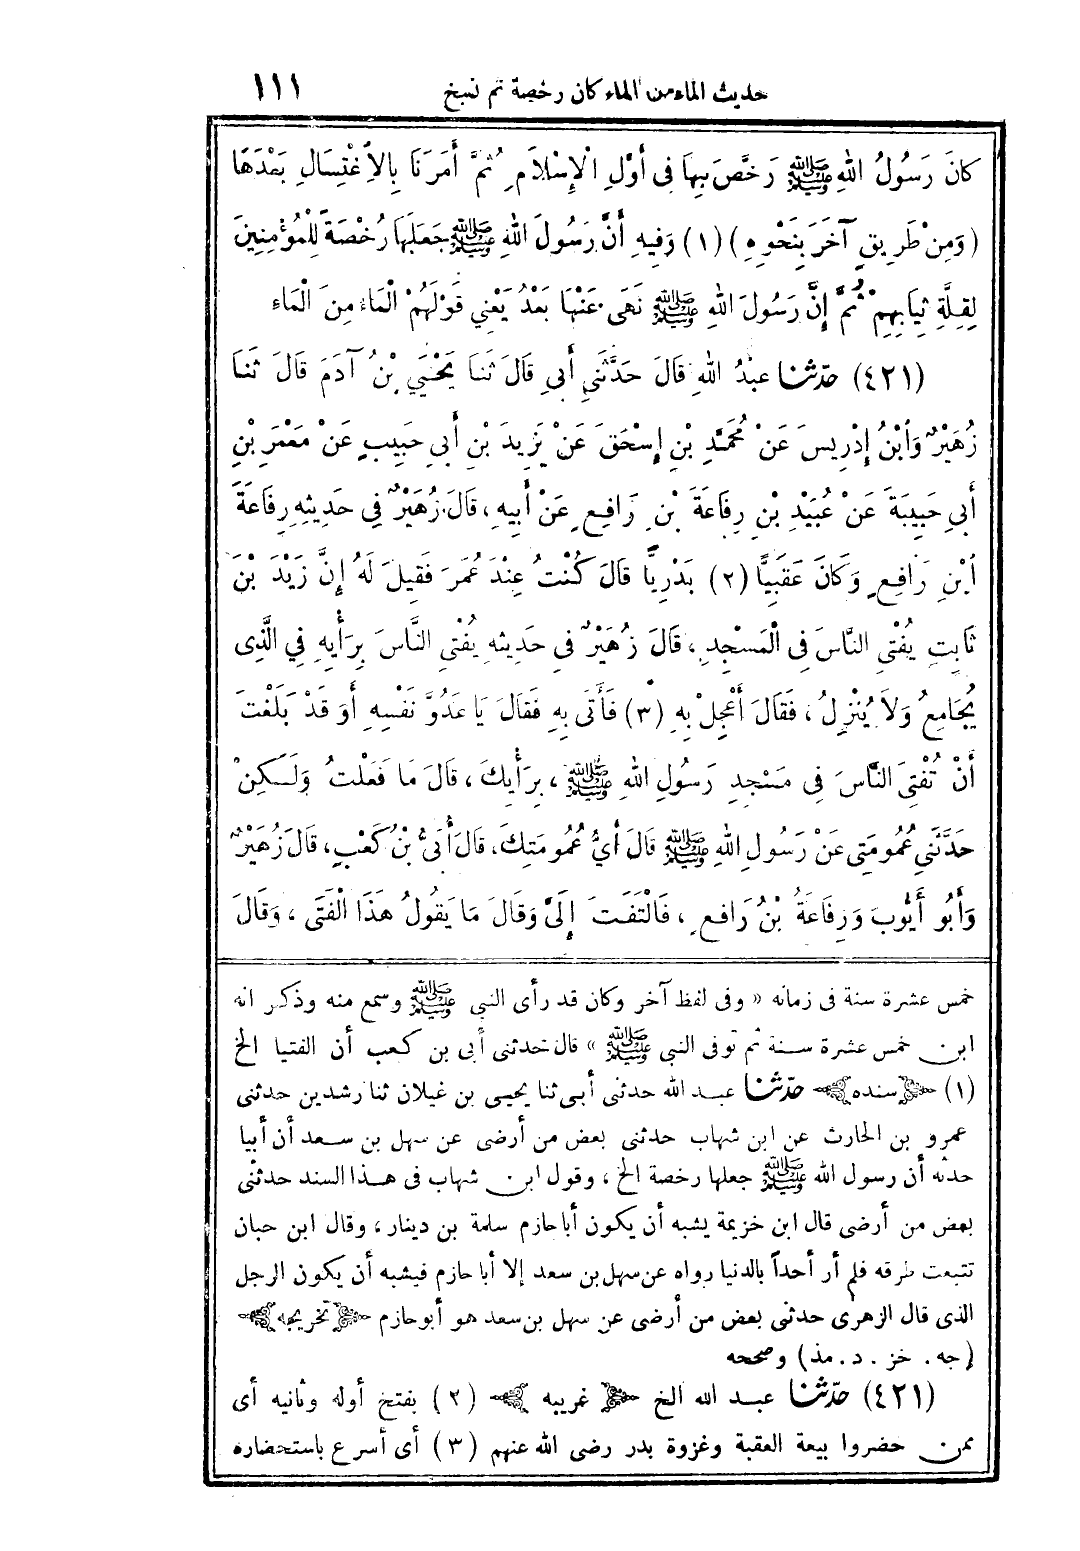 حديث الماء من الماء كان رخصة ثم نسخ ١١١
كَانَ رَسُولُ اللهِ ﷺ رَخَّصَ بِهَا فِى أَوَّلِ الْإِسْلَامِ ثُمَّ أَمَرَنَا بِالْأِغْتِسَالِ بَعْدَهَا
(وَمِنْ طَرِيقٍ آخَرَ بِنَحْوِهِ) (١) وَفِيهِ أَنَّ رَسُولَ اللهِ ﷺ جَعَلَهَا رُخْصَةً لِلْمُؤْمِنِينَ
لِقِلَّةِ ثِيَابِهِمْ ثُمَّ إِنَّ رَسُولَ اللهِ ﷺ نَهَى عَنْهَا بَعْدُ يَعْنِي قَوْلَهُمْ الْمَاءُ مِنَ الْمَاءِ
(٤٢١) حدّثنا عَبْدُ اللهِ قَالَ حَدَّثَنِي أَبِى قَالَ ثَنَا يَحْيَي بْنُ آدَمَ قَالَ ثَنَا
زُهَيْرٌ وَأبْنُ إِدْرِيسَ عَنْ مُحَمَّدِ بْنِ إِسْحَقَ عَنْ يَزِيدَ بْنِ أَبِى حَبِيبٍ عَنْ مَعْمَرِ بْنِ
أَبِى حَبِيبَةَ عَنْ عُبَيْدِ بْنِ رِفَاعَةَ بْنِ رَافِعٍ عَنْ أَبِيهِ، قَالَ زُهَيْرٌ فِى حَدِيثِهِ رِفَاعَةَ
أبْنِ رَافِعٍ وَكَانَ عَقَبِيًّا (٢) بَدْرِيًّا قَالَ كُنْتُ عِنْدَ عُمَرَ فَقِيلَ لَهُ إِنَّ زَيْدَ بْنَ
ثَابِتٍ يُفْتِى النَّاسَ فِى الْمَسْجِدِ، قَالَ زُهَيْرٌ فِى حَدِيثِهِ يُفْتِى النَّاسَ بِرَأْيِهِ فِي الَّذِى
يُجَامِعُ وَلَا يُنْزِلُ، فَقَالَ أَعْجِلْ بِهِ (٣) فَأَتَى بِهِ فَقَالَ يَا عَدُوَّ نَفْسِهِ أَوَ قَدْ بَلَغْتَ
أَنْ تُفْتِىَ النَّاسَ فِى مَسْجِدِ رَسُولِ اللهِ ﷺ، بِرَأْيِكَ، قَالَ مَا فَعَلْتُ وَلَكِنْ
حَدَّثَنِي عُمُومَتِى عَنْ رَسُولِ اللهِ ﷺ قَالَ أَىُّ عُمُومَتِكَ، قَالَ أُبَىُّ بْنُ كَعْبٍ، قَالَ زُهَيْرٌ
وَأَبُو أَيُّوبَ وَرِفَاعَةُ بْنُ رَافِعٍ، فَالْتَفَتَ إِلَىَّ وَقَالَ مَا يَقُولُ هَذَا الْفَتَى، وَقَالَ
خمس عشرة سنة فى زمانه « وفى لفظ آخر وكان قد رأى النبى ﷺ وسمع منه وذكر انه
ابن خمس عشرة سنة ثم توفى النبى ﷺ » قال حدثنى أبى بن كعب أن الفتيا الخ
(١) سنده حدّثنا عبد الله حدثنى أبى ثنا يحيى بن غيلان ثنا رشدين حدثنى
عمرو بن الحارث عن ابن شهاب حدثنى بعض من أرضى عن سهل بن سعد أن أبيا
حدثه أن رسول الله ﷺ جعلها رخصة الخ، وقول ابن شهاب فى هذا السند حدثنى
بعض من أرضى قال ابن خزيمة يشبه أن يكون أبا حازم سلمة بن دينار، وقال ابن حبان
تتبعت طرقه فلم أر أحداً بالدنيا رواه عن سهل بن سعد إلا أبا حازم فيشبه أن يكون الرجل
الذى قال الزهرى حدثنى بعض من أرضى عن سهل بن سعد هو أبو حازم تخريجه
(جه. خز. د. مذ) وصححه
(٤٢١) حدّثنا عبد الله الخ غريبه (٢) بفتح أوله وثانيه أى
ممن حضروا بيعة العقبة وغزوة بدر رضى الله عنهم (٣) أى أسرع باستحضاره